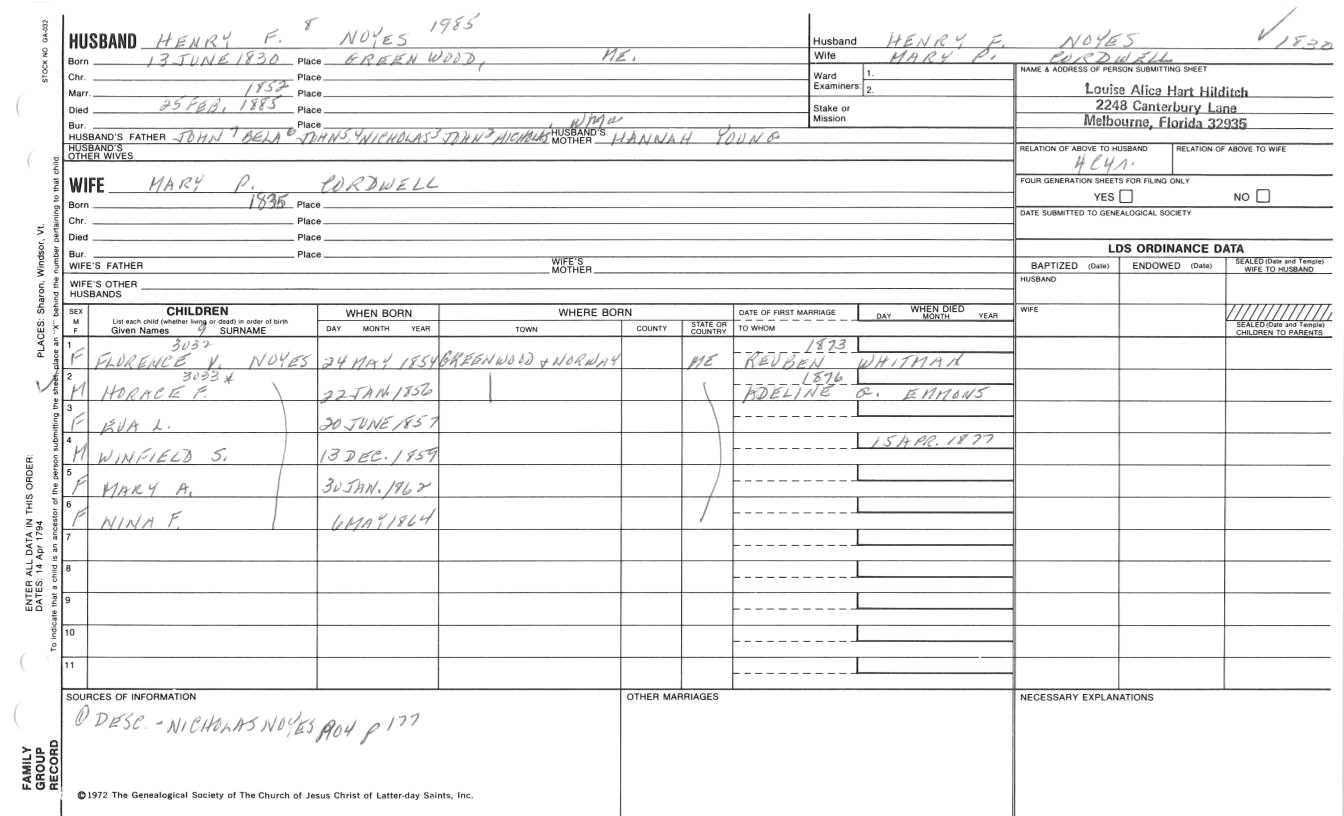 STOCK NO GA-032
HUSBAND HENRY F. 8 NOYES 1985
Born 13 JUNE 1830 Place GREENWOOD, ME.
Chr. Place
Marr. 1852 Place
Died 25 FEB, 1885 Place
Bur. Place
HUSBAND'S FATHER JOHN 7 BELA 6 JOHN 5 4 NICHOLAS 3 JOHN 2 NICHOLAS HUSBAND'S MOTHER HANNAH YOUNG
HUSBAND'S OTHER WIVES
WIFE MARY P. CORDWELL
Born 1835 Place
Chr. Place
Died Place
Bur. Place
WIFE'S FATHER WIFE'S MOTHER
WIFE'S OTHER HUSBANDS
Husband HENRY F. NOYES 1830
Wife MARY P. CORDWELL
Ward Examiners 1. 2.
Stake or Mission
NAME & ADDRESS OF PERSON SUBMITTING SHEET
Louise Alice Hart Hilditch
2248 Canterbury Lane
Melbourne, Florida 32935
RELATION OF ABOVE TO HUSBAND RELATION OF ABOVE TO WIFE
FOUR GENERATION SHEETS FOR FILING ONLY
YES NO
DATE SUBMITTED TO GENEALOGICAL SOCIETY
LDS ORDINANCE DATA
BAPTIZED (Date) ENDOWED (Date) SEALED (Date and Temple) WIFE TO HUSBAND
HUSBAND
WIFE
SEALED (Date and Temple) CHILDREN TO PARENTS
SEX M F
CHILDREN
List each child (whether living or dead) in order of birth
Given Names 9 SURNAME
WHEN BORN
DAY MONTH YEAR
WHERE BORN
TOWN COUNTY STATE OR COUNTRY
DATE OF FIRST MARRIAGE
TO WHOM
WHEN DIED
DAY MONTH YEAR
3032 1873
1 F FLORENCE V. NOYES 24 MAY 1854 GREENWOOD & NORWAY ME REUBEN WHITMAN
3033 * 1876
2 M HORACE F. 22 JAN. 1856 ADELINE G. EMMONS
3 F EVA L. 20 JUNE 1857
4 M WINFIELD S. 13 DEC. 1859 15 APR. 1877
5 F MARY A. 30 JAN. 1862
6 F NINA F. 6 MAY 1864
7
8
9
10
11
SOURCES OF INFORMATION
① DESC. - NICHOLAS NOYES 1904 p 177
OTHER MARRIAGES
NECESSARY EXPLANATIONS
©1972 The Genealogical Society of The Church of Jesus Christ of Latter-day Saints, Inc.
FAMILY
GROUP
RECORD
ENTER ALL DATA IN THIS ORDER:
DATES: 14 Apr 1794
PLACES: Sharon, Windsor, Vt.
To indicate that a child is an ancestor of the person submitting the sheet, place an "X" behind the number pertaining to that child